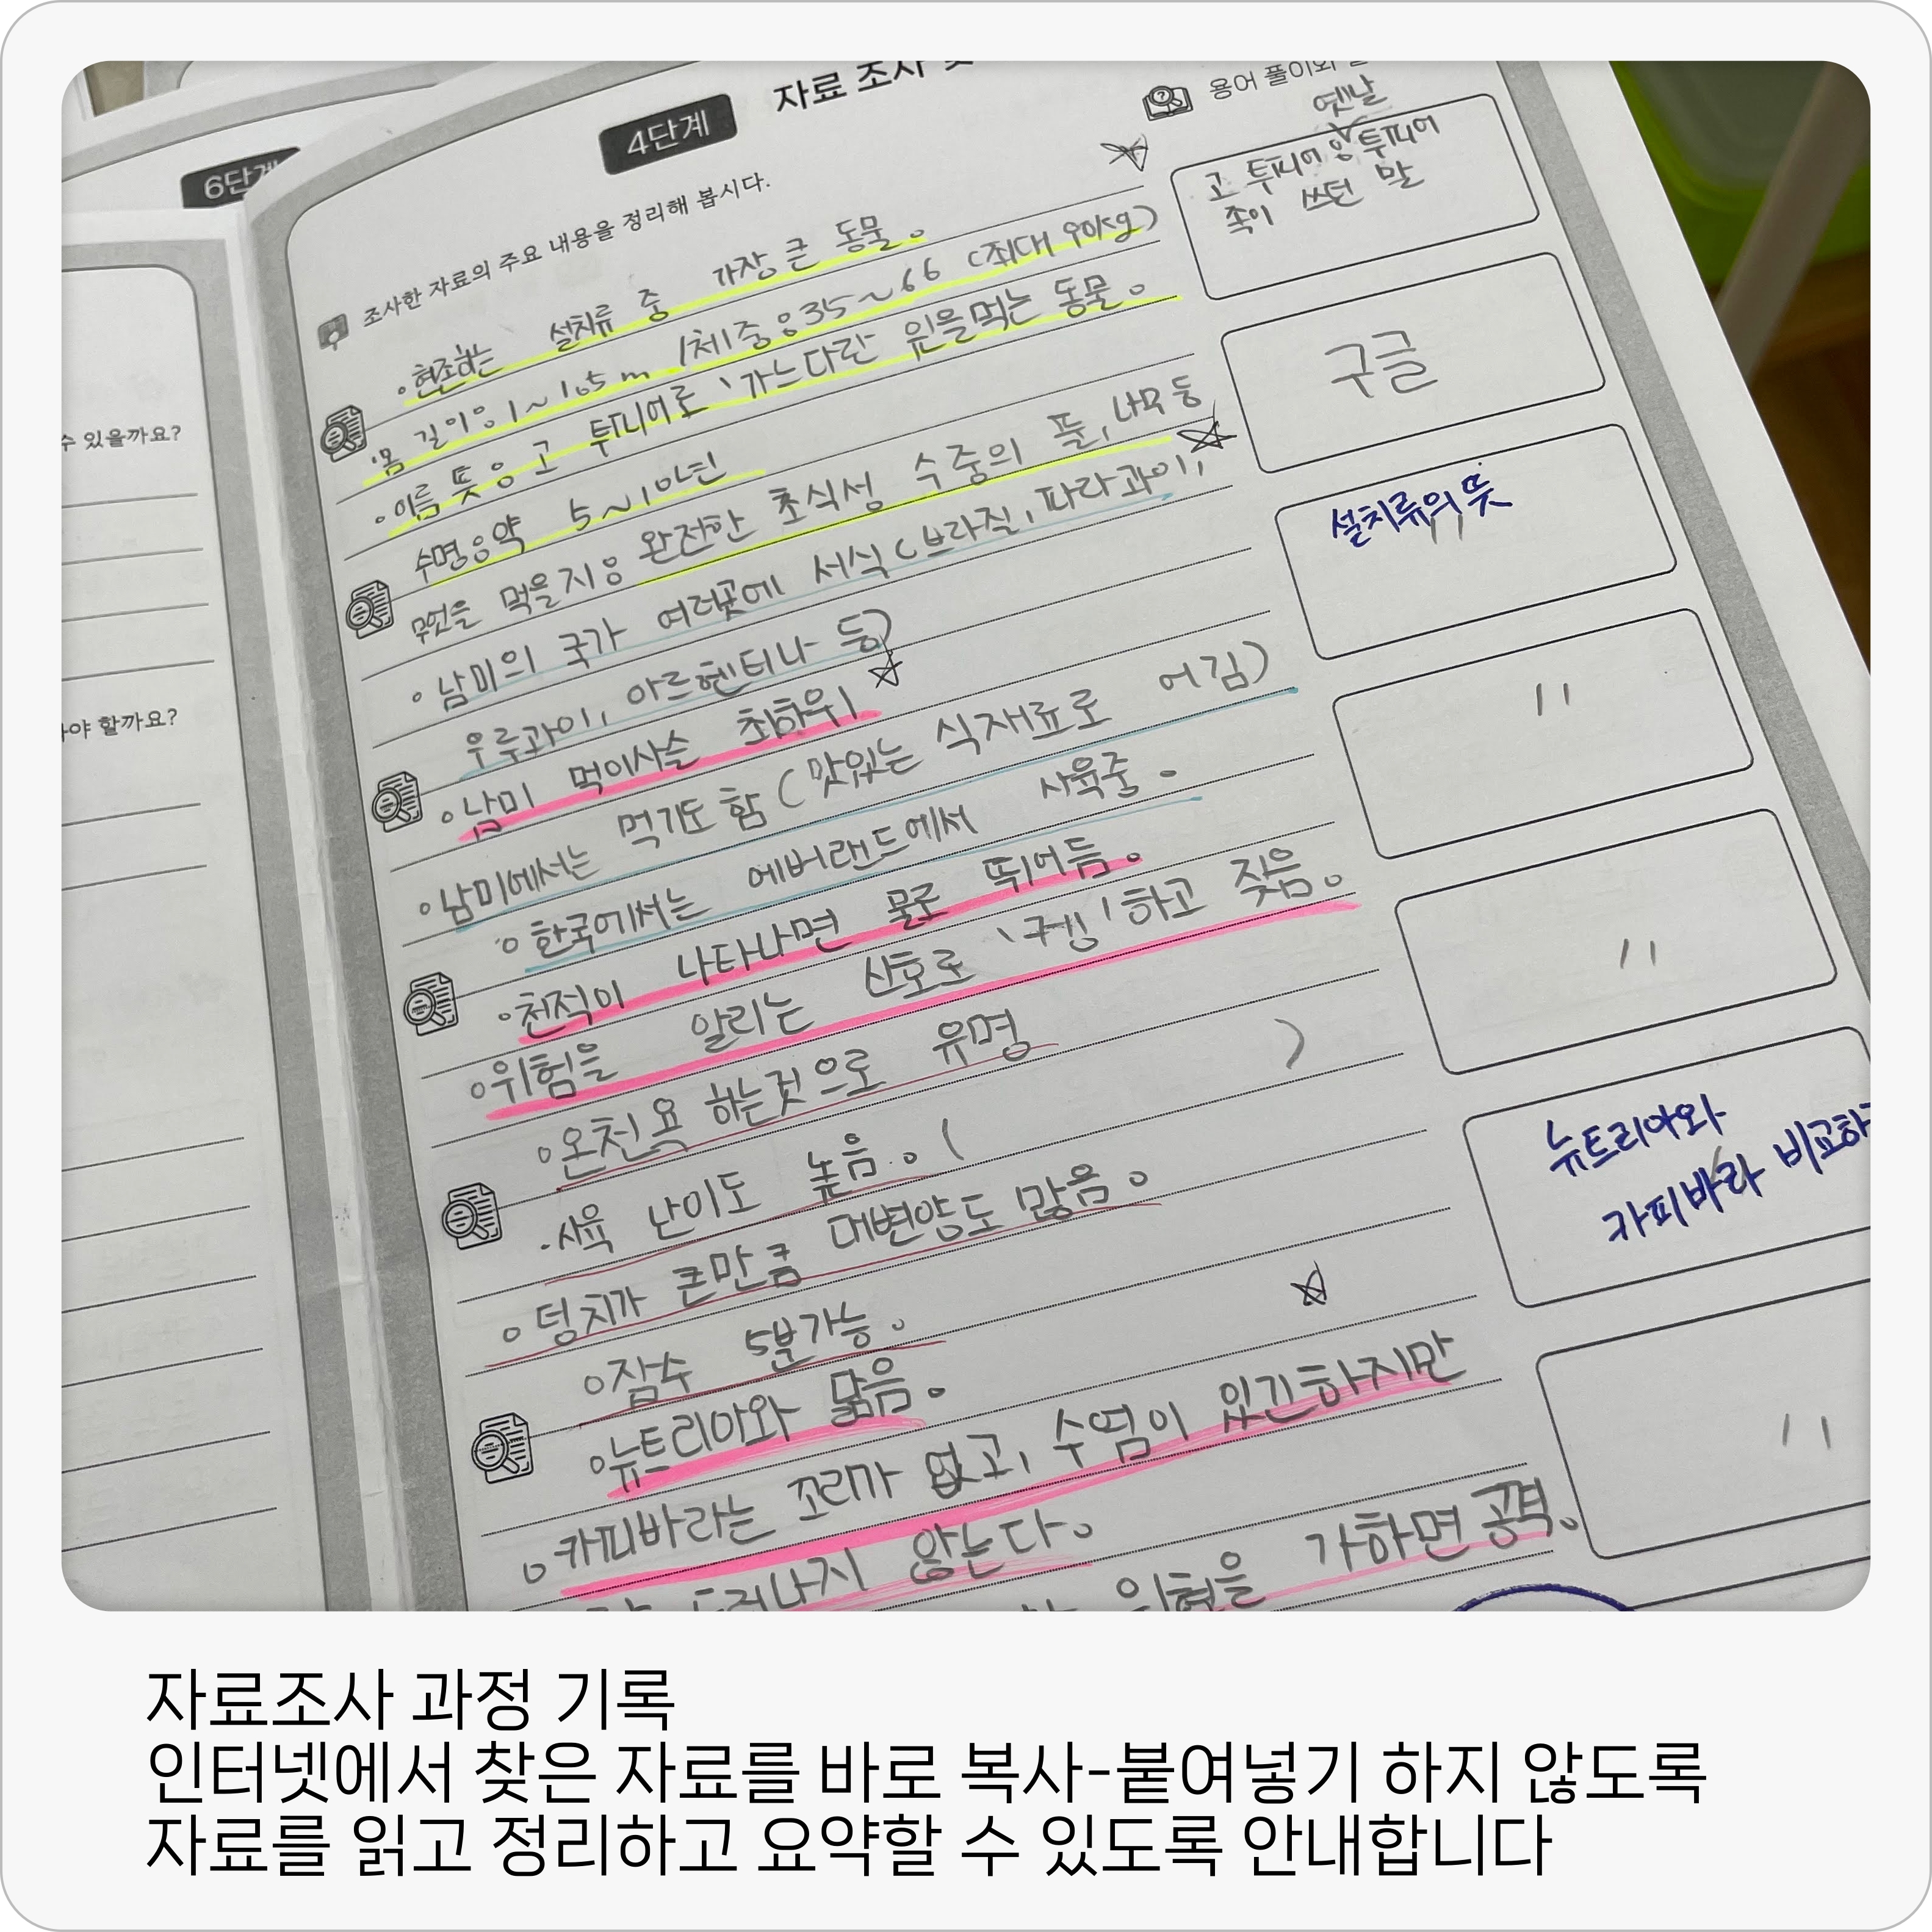 6단계
수 있을까요?
야 할까요?
4단계
자료 조사 및
조사한 자료의 주요 내용을 정리해 봅시다.
용어 풀이와
현존하는 설치류 중 가장 큰 동물.
몸 길이: 1~1.5m / 체중: 35~66 (최대 90kg)
이름 뜻: 고 투피어로 '가느다란 잎을먹는 동물.
수명: 약 5~10년
무엇을 먹을지: 완전한 초식성 수중의 풀, 나무 등
남미의 국가 여러곳에 서식 (브라질, 파라과이,
우루과이, 아르헨티나 등)
남미 먹이사슬 최하위
남미에서는 먹기도 함 (맛있는 식재료로 여김)
한국에서는 에버랜드에서 사육중.
천적이 나타나면 물로 뛰어듬.
위험을 알리는 신호로 '구엥' 하고 짖음.
온천욕 하는것으로 유명
사육 난이도 높음. ( )
덩치가 큰만큼 대변양도 많음.
잠수 5분가능.
뉴트리아와 닮음.
카피바라는 꼬리가 없고, 수염이 있긴하지만
드러나지 않는다.
위협을 가하면 공격.
옛날
고 투피어: 투피어
족이 쓰던 말
구글
설치류의 뜻
〃
〃
〃
뉴트리아와
카피바라 비교하
〃
자료조사 과정 기록
인터넷에서 찾은 자료를 바로 복사-붙여넣기 하지 않도록
자료를 읽고 정리하고 요약할 수 있도록 안내합니다